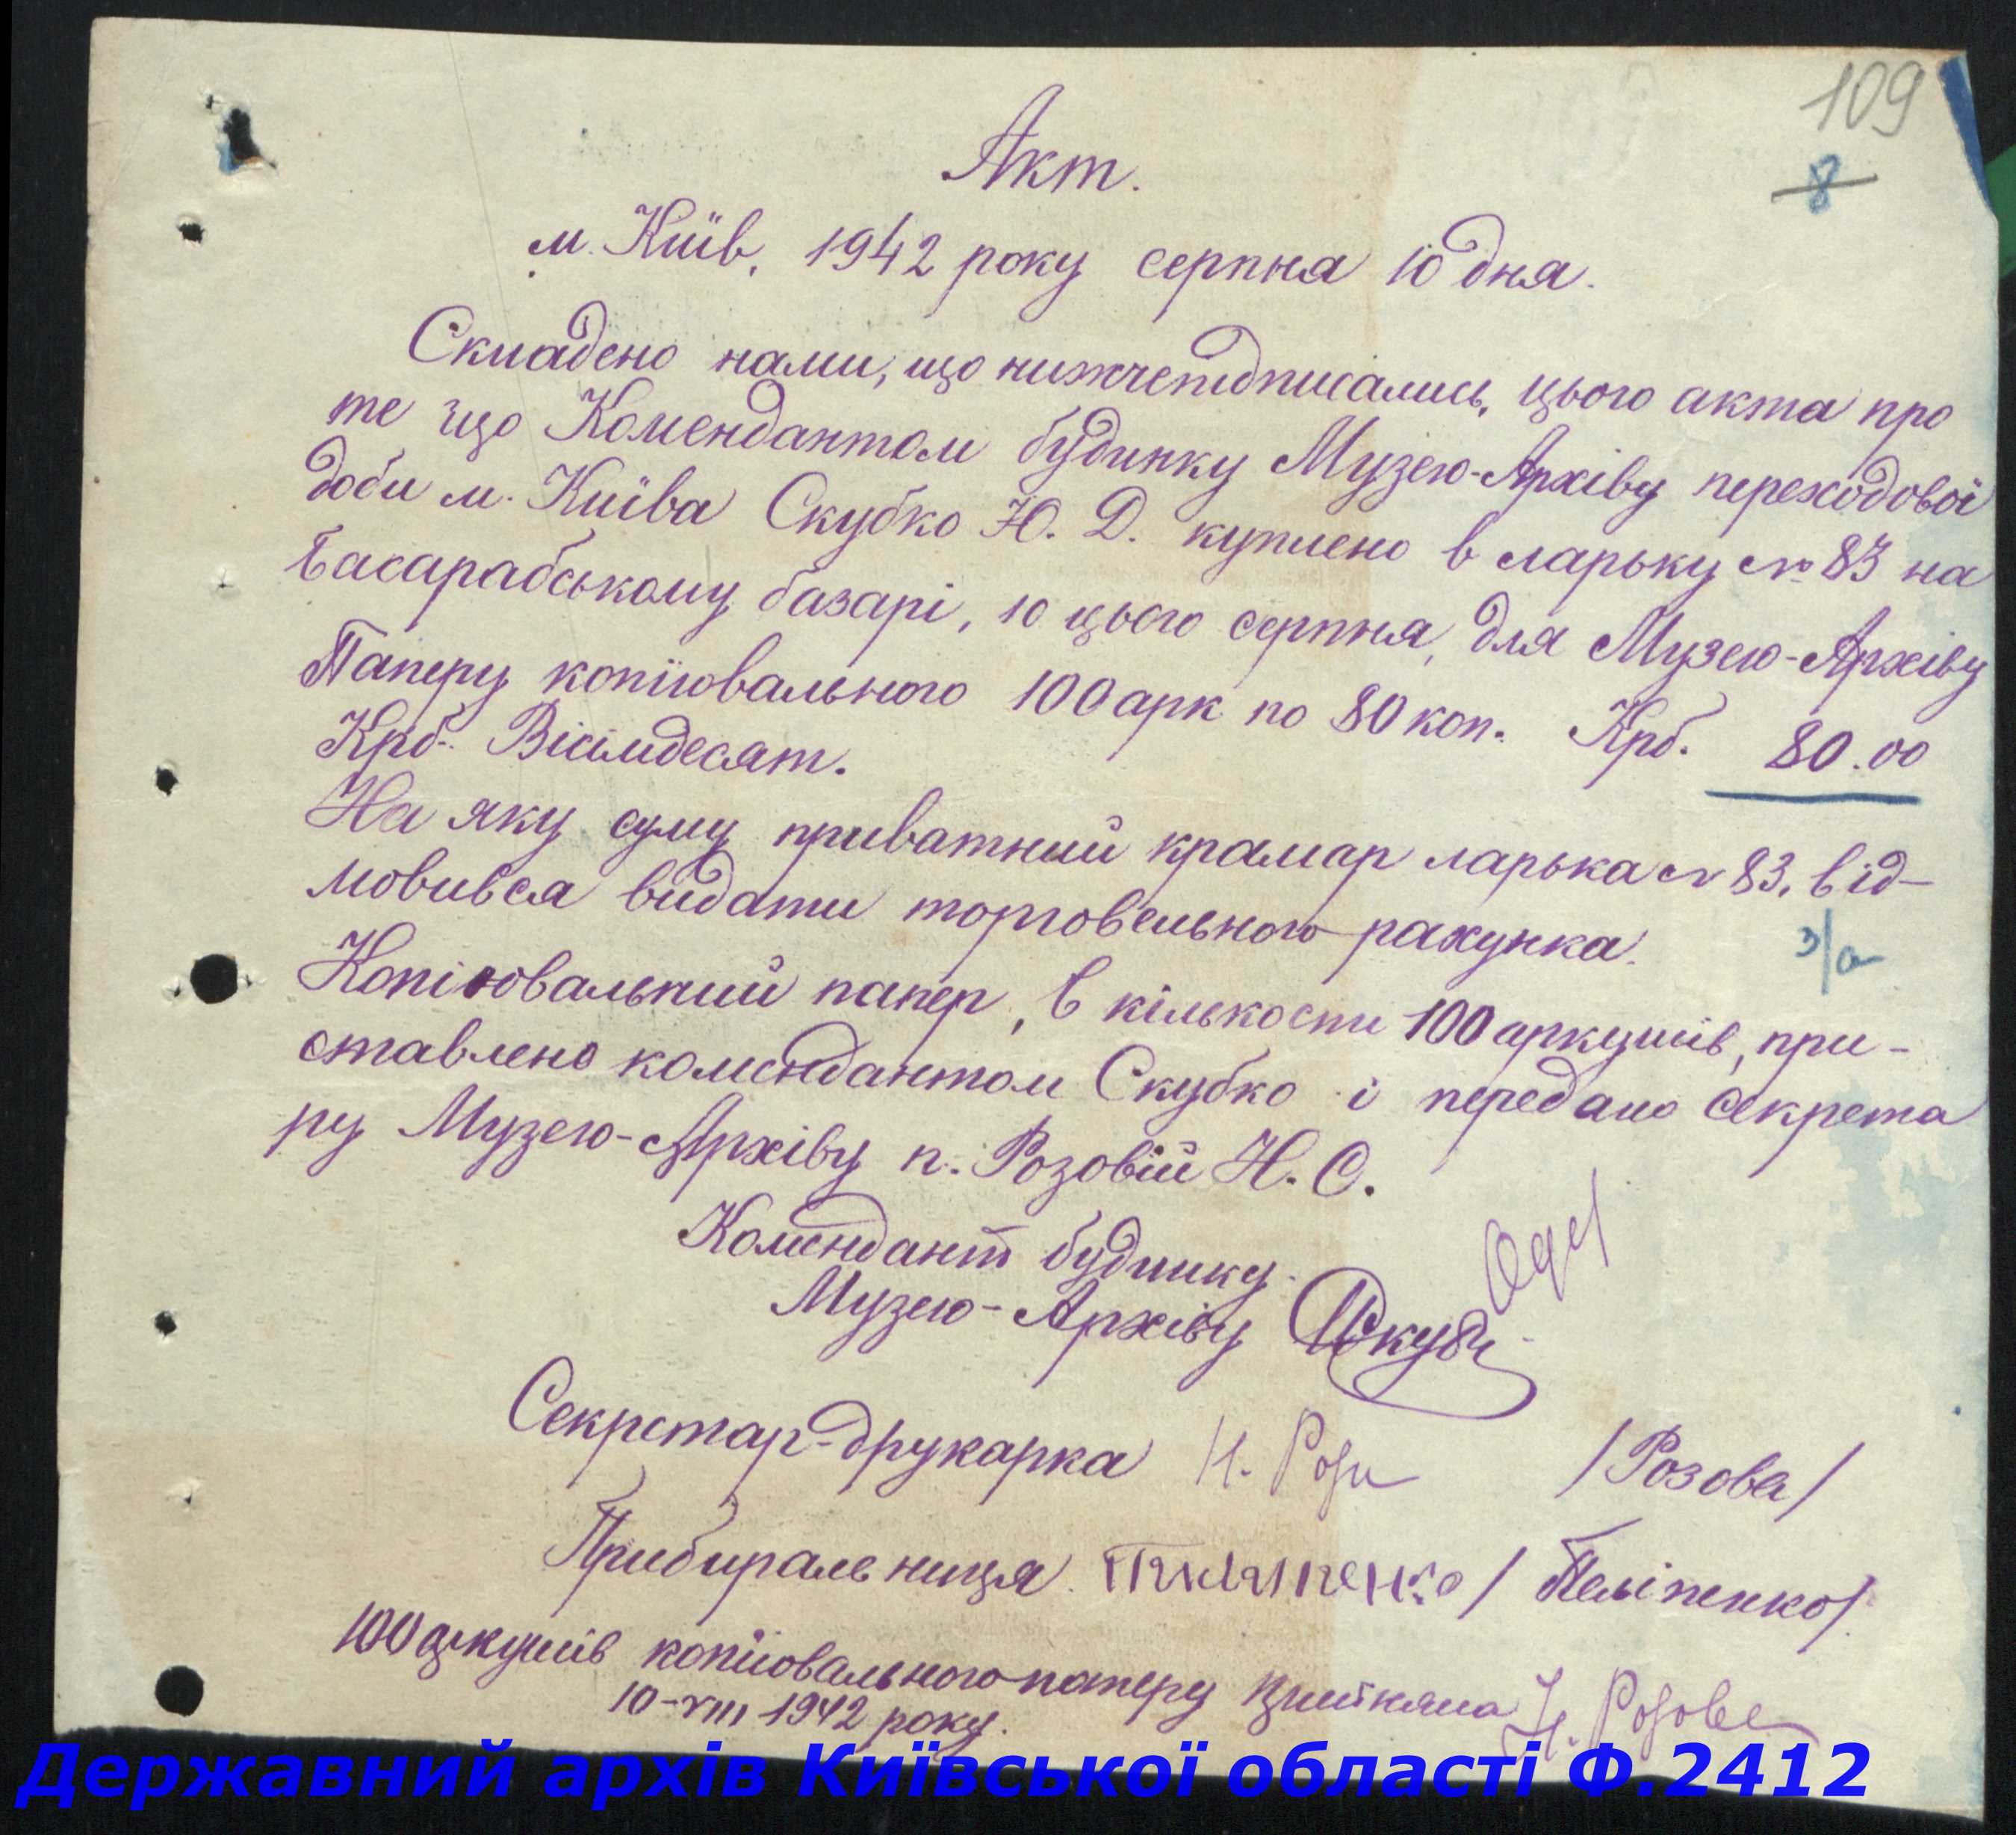 109
8
Акт.
м. Київ, 1942 року серпня 10 дня.
Складено нами, що нижчепідписались, цього акта про
те що Комендантом будинку Музею-Архіву переходової
доби м. Київа Скубко Ю. Д. куплено в ларьку № 83 на
Басарабському базарі, 10 цього серпня, для Музею-Архіву
Паперу копіювального 100 арк по 80 коп. Крб. 80.00
Крб. Вісімдесят.
На яку суму приватний крамар ларька № 83, від-
мовився видати торговельного рахунка.
з/а
Копіювальний папер, в кількости 100 аркушів, при-
ставлено комендантом Скубко і передано секрета
ру Музею-Архіву п. Розовій Н. С.
Комендант будинку
Музею-Архіву Скубко
Секретар-друкарка Н. Роз /Розова/
Прибиральниця. /Пеліпенко/
100 аркушів копіювального паперу прийняла Н. Розова
10-VIII 1942 року.
Державний архів Київської області Ф.2412